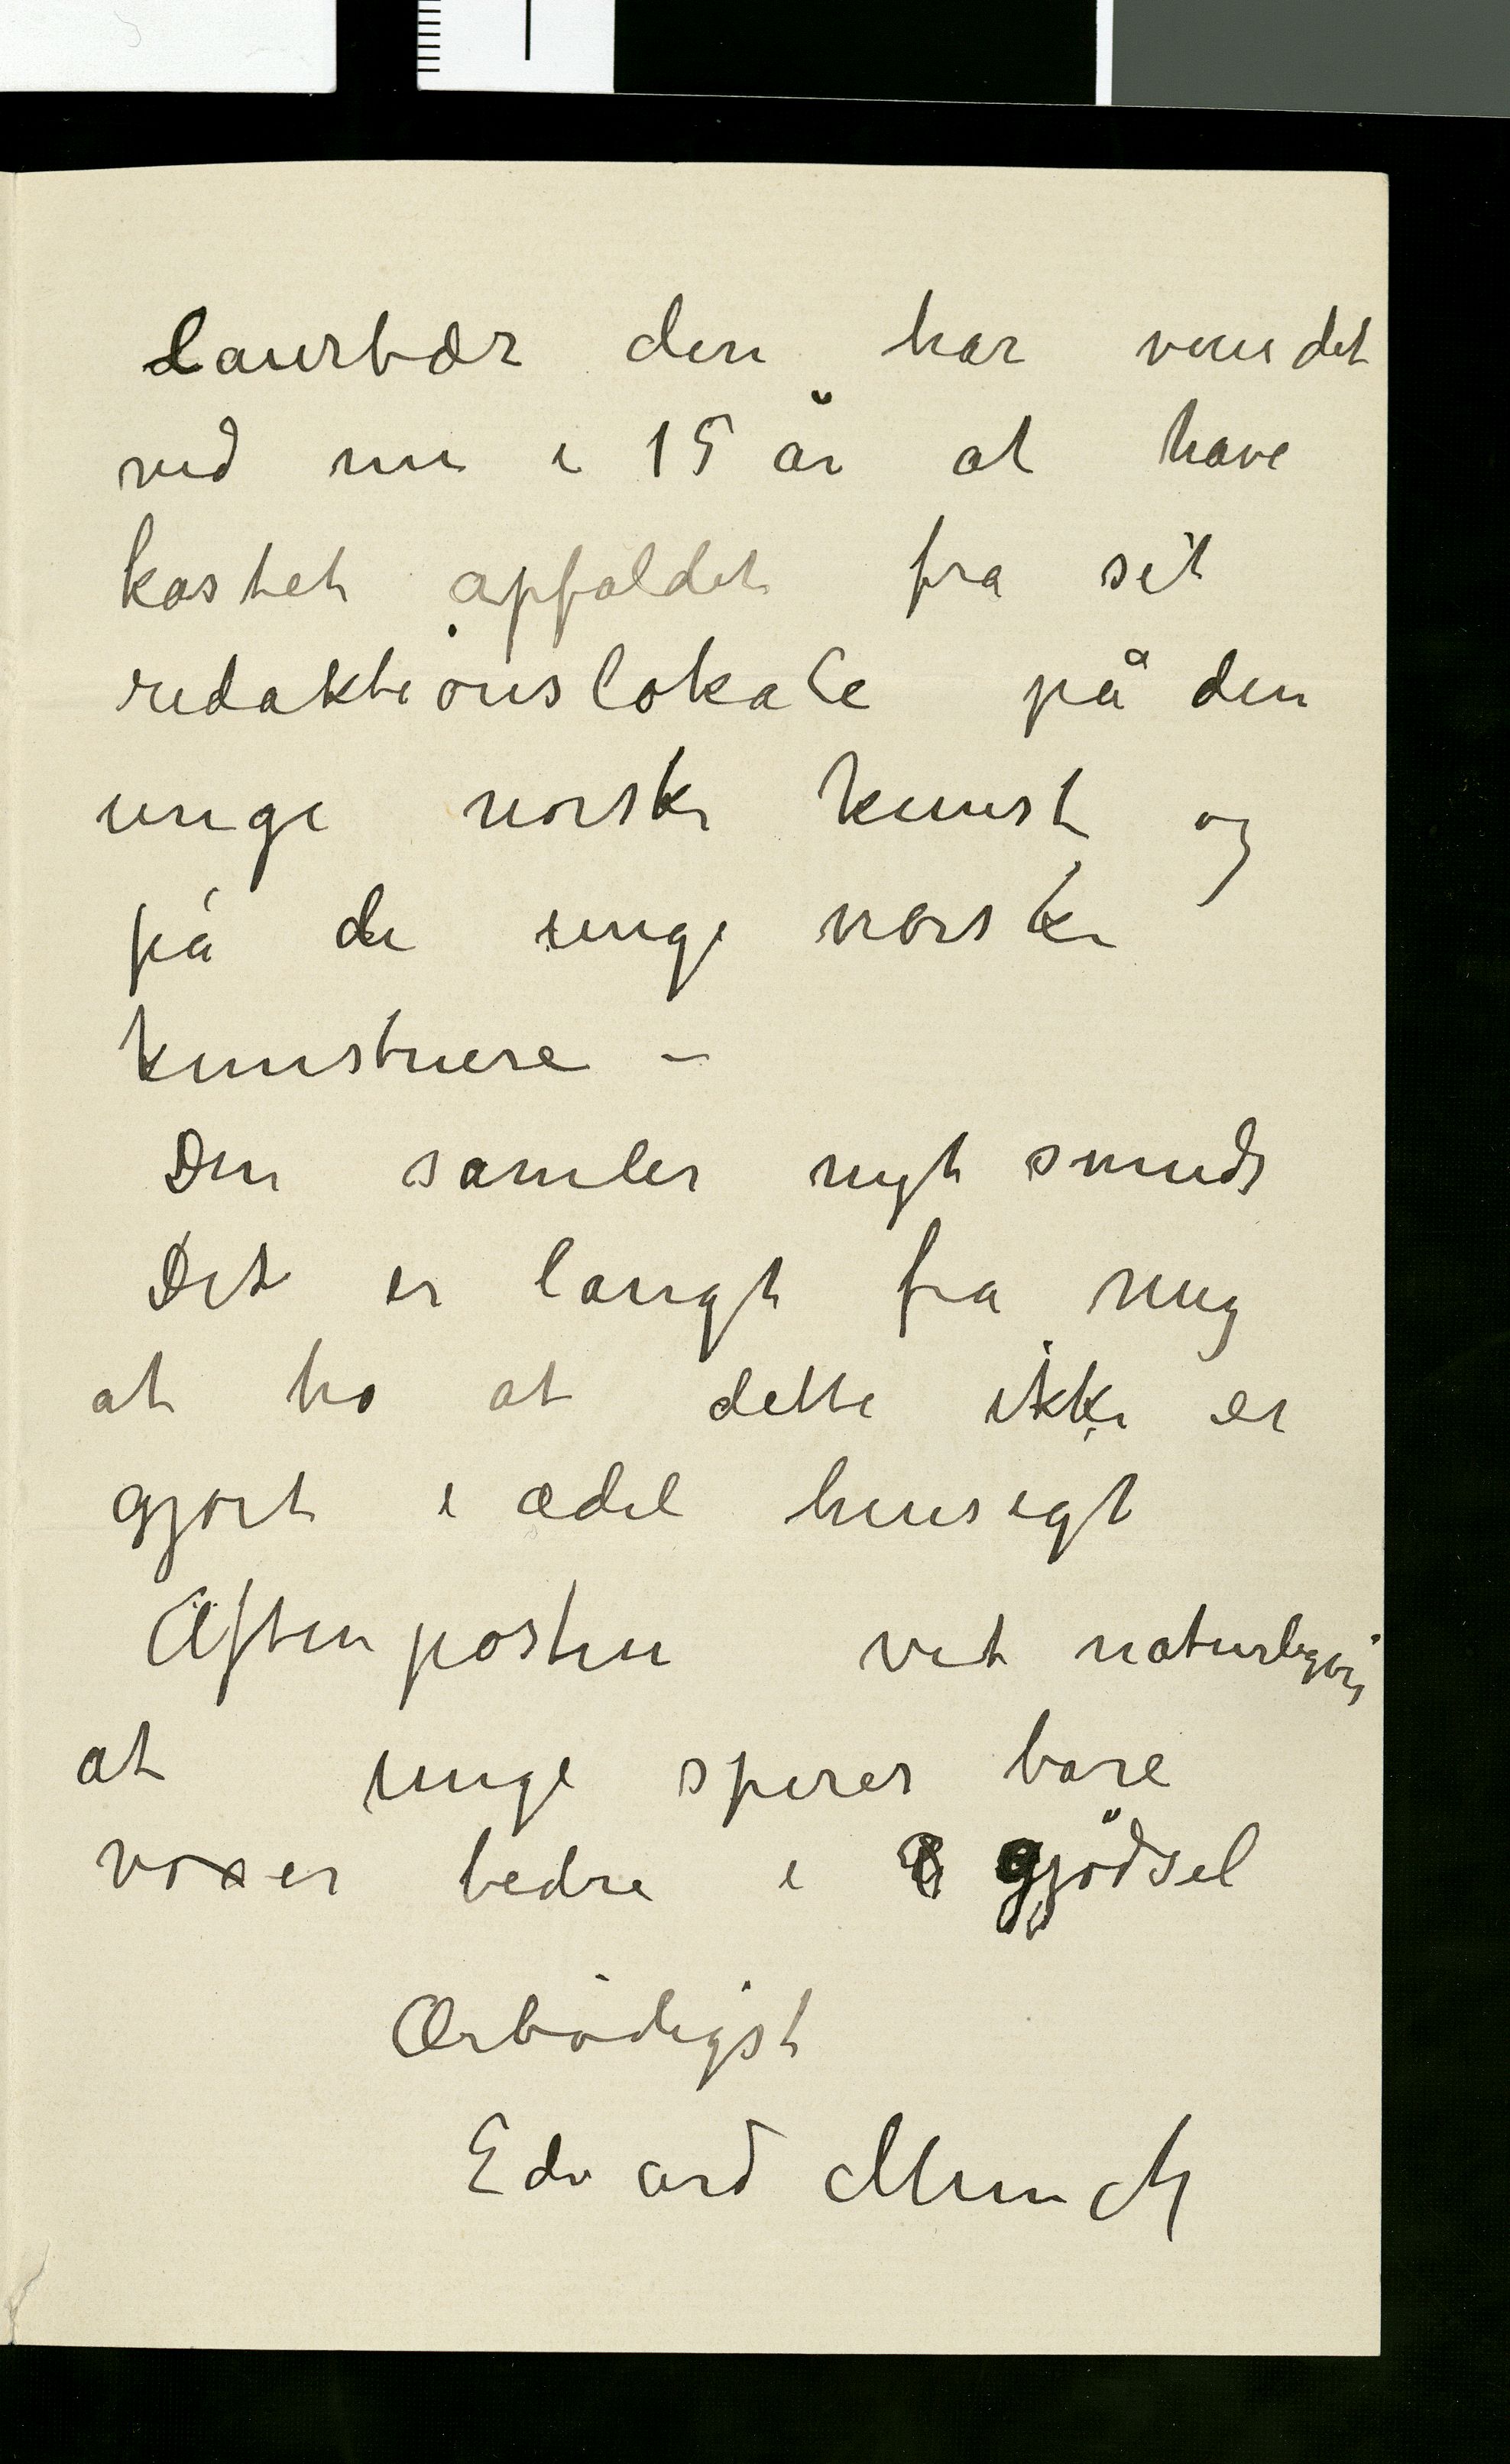 Laurbær den har vundet
ved nu i 15 år at have
kastet apfaldet fra sit
redaktionslokale på den
unge norske kunst og
på de unge norske
kunstnere –
Den samler nyt smuds
Det er langt fra mig
at tro at dette ikke er
gjort i ædel hensigt
Aftenposten vet naturligvis
at unge spirer bare
voxer bedre i gjödsel
Ærbödigst
Edvard Munch